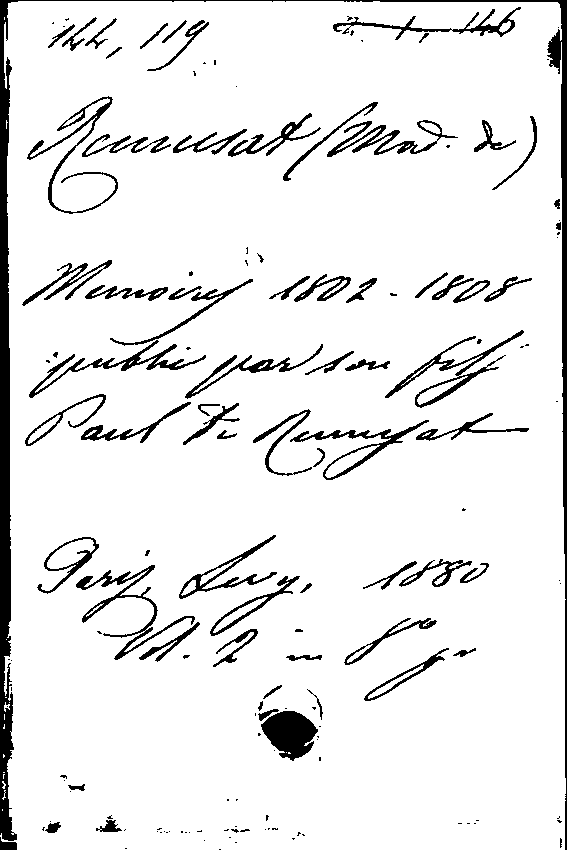 144, 119
2 1, 146
Remusat (Mad. de)
Memoires 1802 - 1808
publié par son fils
Paul de Remusat
Paris, Levy, 1880
Vol. 2 in 8º gr